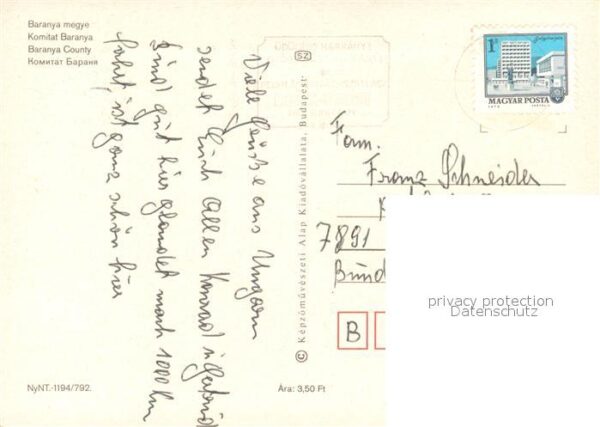 Baranya megye
Komitat Baranya
Baranya County
Комитат Бараня
Viele Grüße aus Ungarn
sendet Euch Allen Konrad
Sind gut hier gelandet nach 1000 km
Fahrt, ist ganz schön hier
© Képzőművészeti Alap Kiadóvállalata, Budapest
SZ
1Ft
MAGYAR POSTA
Fam.
Franz Schneider
7891
B
privacy protection
Datenschutz
NyNT.-1194/792.
Ára: 3,50 Ft